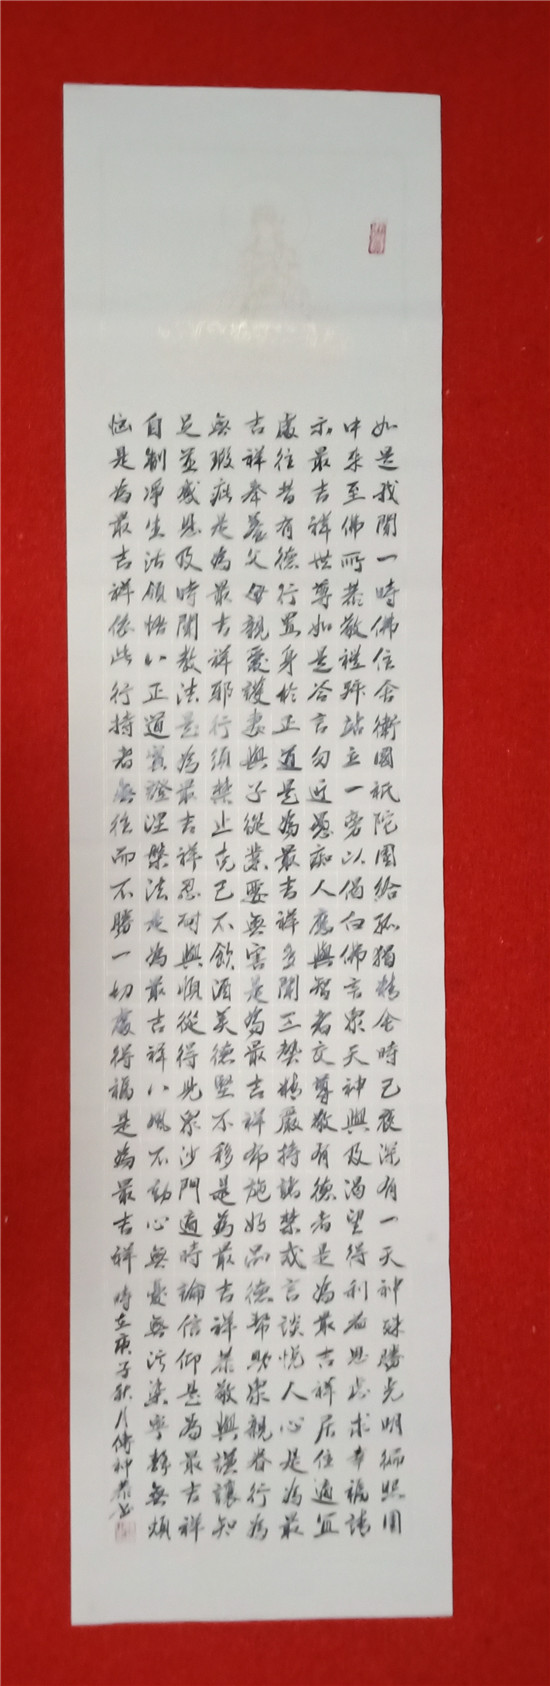 如是我聞一時佛住舍衛國祇陀園給孤獨精舍時已夜深有一天神殊勝光明徧照園
中來至佛所恭敬禮拜站立一旁以偈白佛言眾天神與及渴望得利益思慮求幸福請
示最吉祥世尊如是答言勿近愚痴人應與智者交尊敬有德者是為最吉祥居住適宜
處往昔有德行置身於正道是為最吉祥多聞工藝精嚴持諸禁戒言談悅人心是為最
吉祥奉養父母親愛護妻與子從業要無害是為最吉祥布施好品德幫助眾親眷行為
無瑕疵是為最吉祥耶行須禁止克己不飲酒美德堅不移是為最吉祥恭敬與謙讓知
足並感恩及時聞教法是為最吉祥忍耐與順從得見眾沙門適時論信仰是為最吉祥
自制淨生活領悟八正道實證涅槃法是為最吉祥八風不動心無憂無污染寧靜無煩
惱是為最吉祥依此行持者無往而不勝一切處得福是為最吉祥 時在庚子秋月傅神恭書